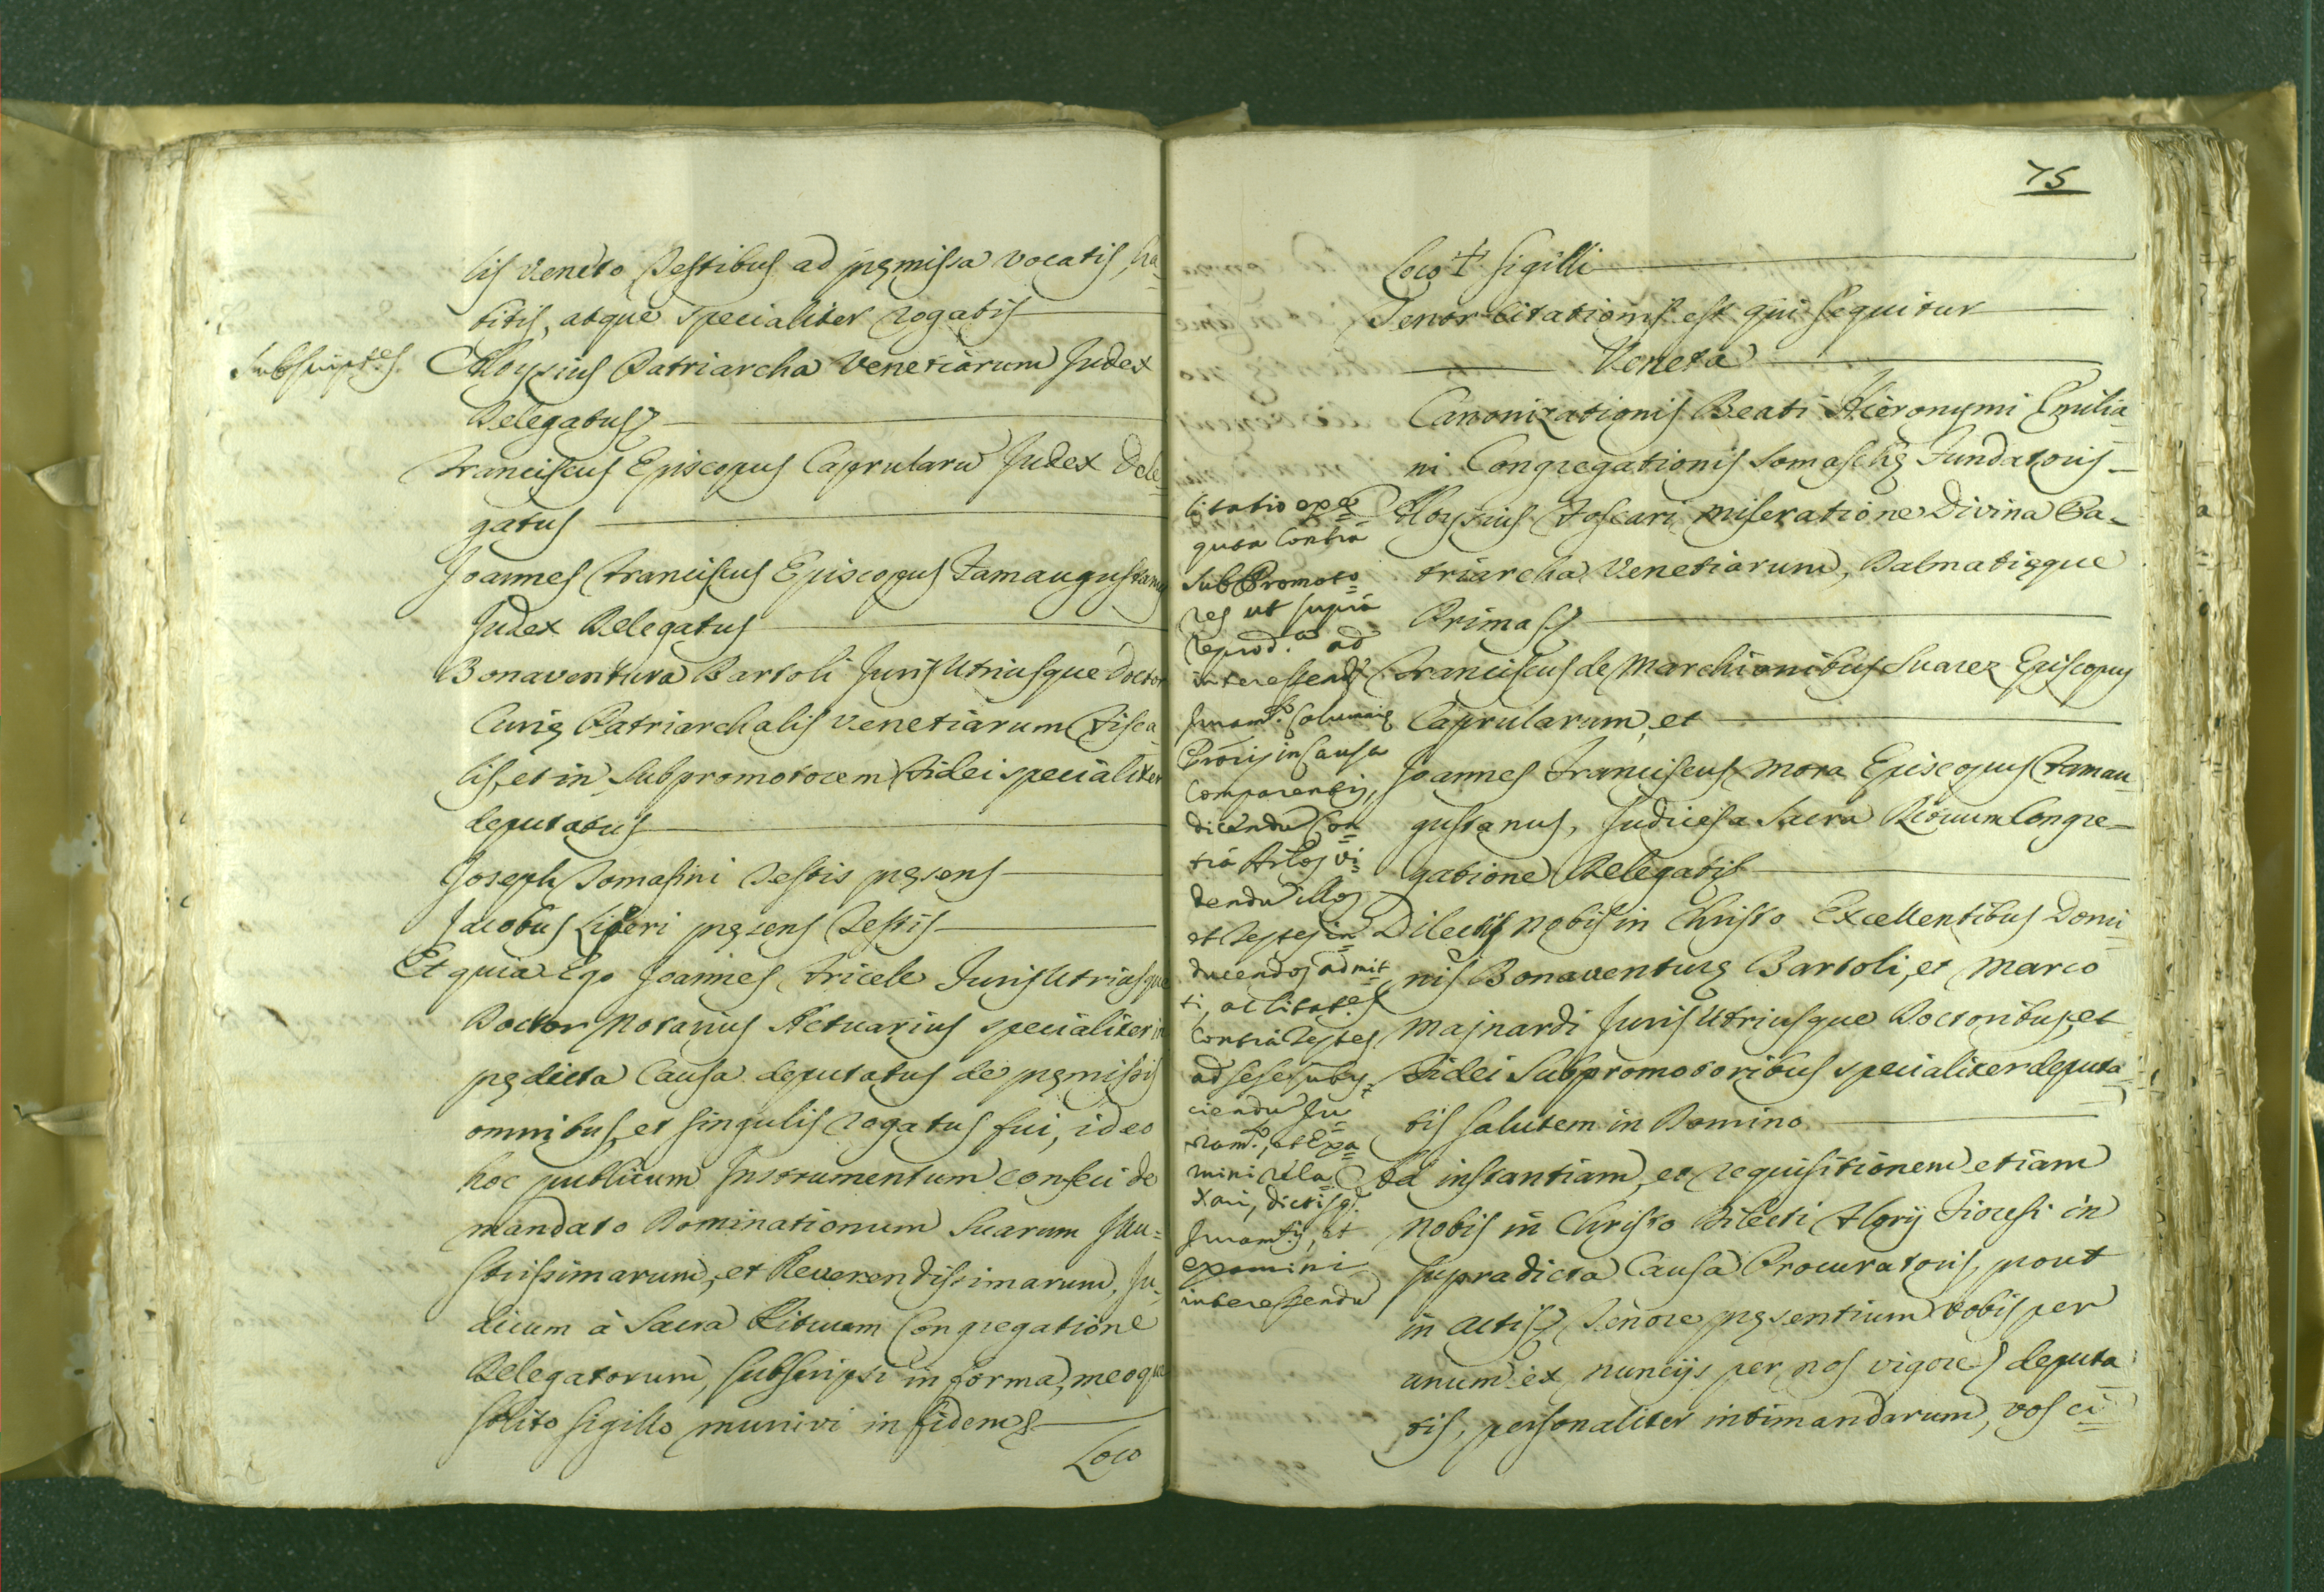 lis Veneto Testibus ad pręmissa vocatis, ha-
bitis, atque specialiter rogatis
Subscript.es
Aloysius Patriarcha Venetiarum Judex
Delegatus
Franciscus Episcopus Caprularu Judex Dele-
gatus
Joannes Franciscus Episcopus Famaugustanus
Judex Delegatus
Bonaventura Bartoli Juris Utriusque Doctor
Curię Patriarchalis Venetiarum Fisca-
lis, et in Subpromotorem Fidei specialiter
deputatus
Joseph Tomasini Testis pręsens
Jacobus Liberi pręsens Testis
Et quia Ego Joannes Fricele Juris Utriusque
Doctor Notarius Actuarius specialiter in
pędicta Causa deputatus de pęmissis
omnibus, et singulis rogatus fui, ideo
hoc publicum Instrumentum confeci de
mandato Dominationum Suarum Illu-
strissimarum, et Reverendissimarum, Ju-
dicum à Sacra Rituum Congregatione
Delegatorum, subscripsi in forma, meoque
solito sigillo munivi in fidem
Loco
75
Loco † sigilli
Tenor Citationis est qui sequitur
Veneta
Canonizationis Beati Hieronymi Emilia-
ni Congregationis Somaschę Fundatoris
Aloysius Foscari miseratione Divina Pa-
triarcha Venetiarum, Dalmatięque
Primas
Franciscus de Marchionibus Suarez Episcopus
Caprularum, et
Joannes Franciscus Mora Episcopus Famau-
gustanus, Judices a Sacra Rituum Congre-
gatione Delegatis
Dilectis nobis in Christo Excellentibus Domi-
nis Bonaventurę Bartoli, et Marco
Majnardi Juris Utriusque Doctoribus, et
Fidei Subpromotoribus specialiter deputa-
tis salutem in Domino
Ad instantiam, et requisitionem etiam
Nobis in Christo Dilecti Alorij Fioresi in
supradicta Causa Procuratoris, prout
in actis Tenore pręsentium vobis per
unum ex nuncijs per nos vigore deputa-
tis, personaliter intimandarum, vos ci-
Citatio exe-
quta contra
SubPromoto-
res ut supra
reprod.a ad
interessend
Juram.to Calumnię
Procis in Causa
Comparentis,
dicendu Con-
tra Artlos vi-
dendu illos
et Testes in-
ducendos admit-
ti, ac Citat.es
Contra Testes
ad sese suby-
ciendu Ju-
ram.to, et Exa-
mini rela-
xari, dictisq.
Juram.tis, et
examini
interessendu